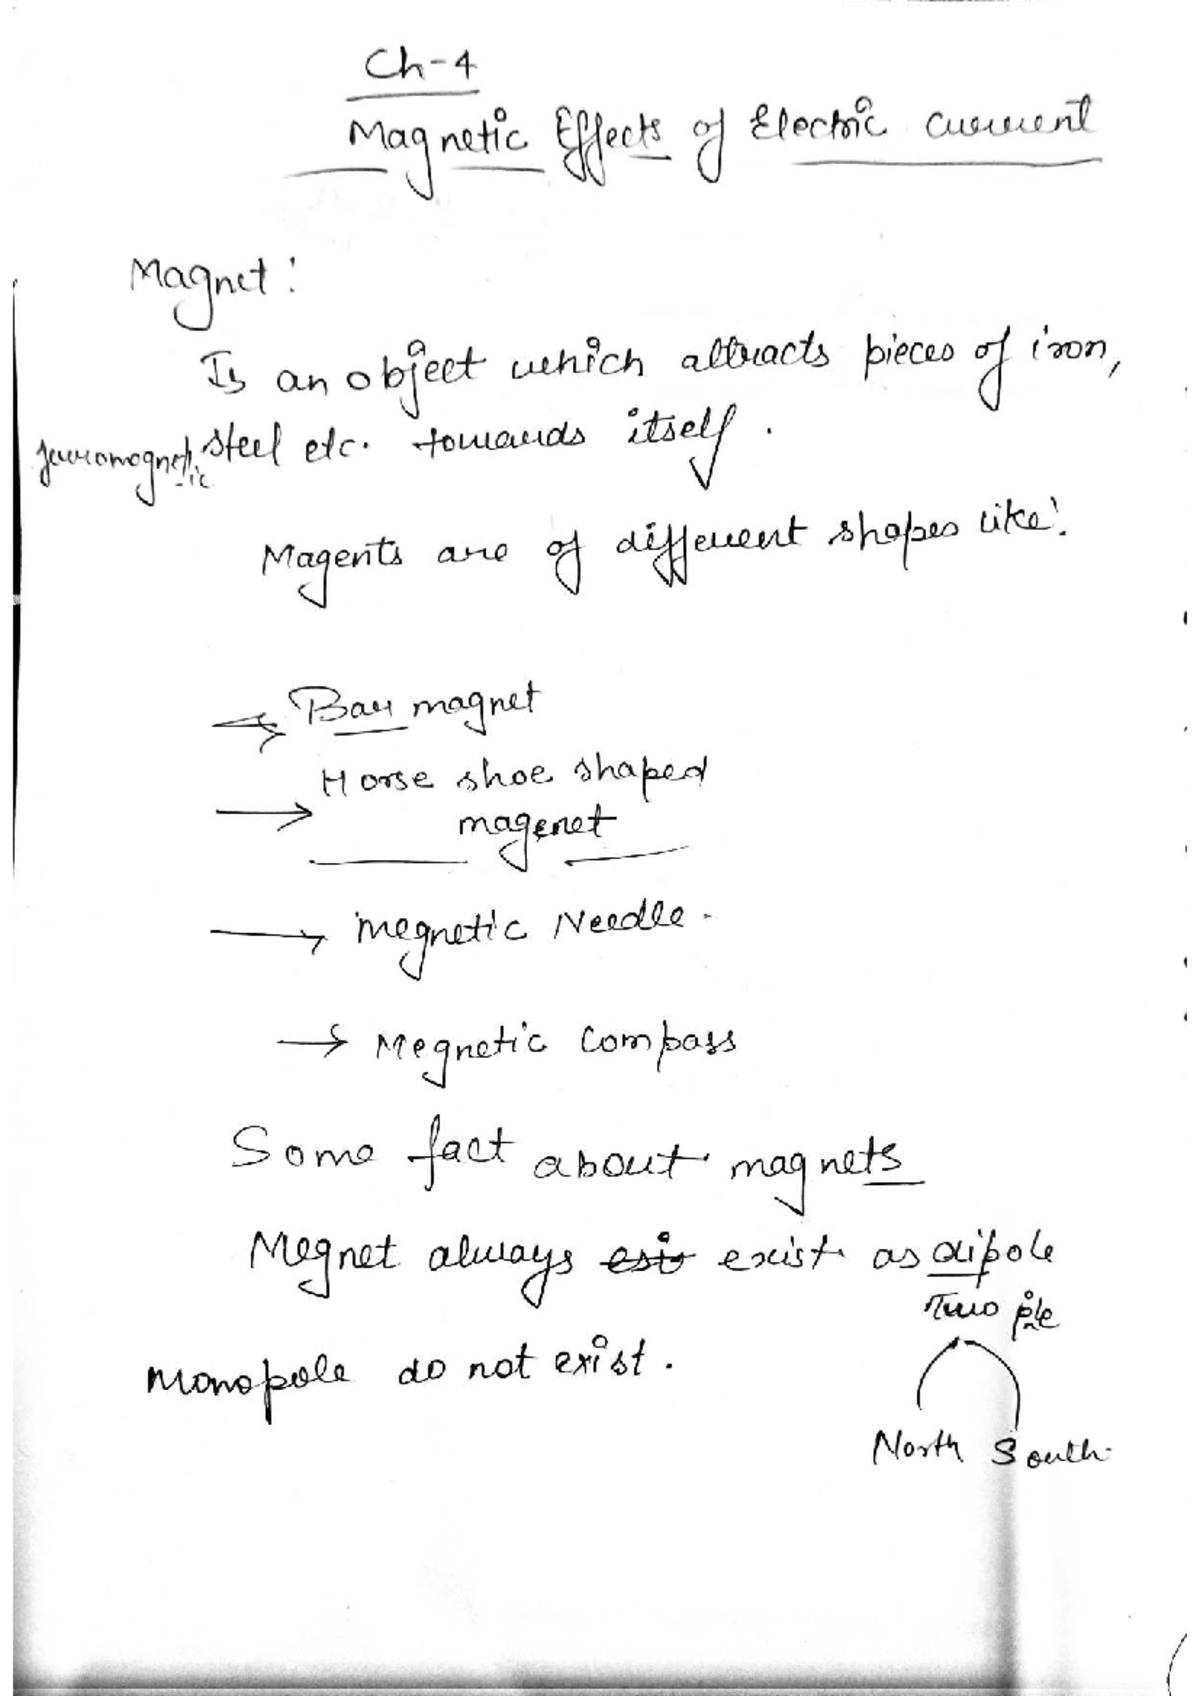 Ch-4
Magnetic Effects of Electric current
Magnet:
Is an object which attracts pieces of iron,
ferromagnetic steel etc. towards itself.
Magents are of different shapes like:
→ Bar magnet
→ Horse shoe shaped
magenet
→ megnetic Needle.
→ Megnetic Compass
Some fact about magnets
Megnet always exist as dipole
Two ple
monopole do not exist.
North South